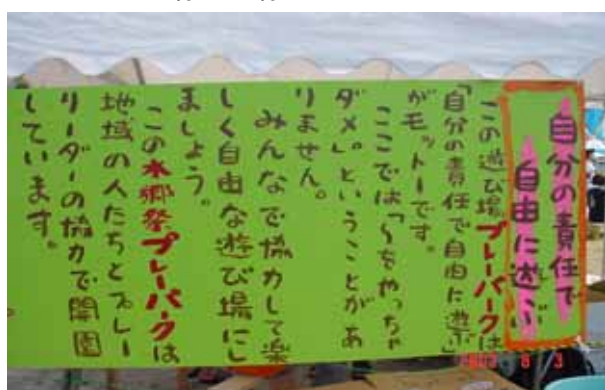 自分の責任で
自由に遊ぶ
この遊び場プレーパークは
「自分の責任で自由に遊ぶ」
がモットーです。
ここでは「〜をやっちゃ
ダメ」ということがあ
りません。
みんなで協力して楽
しく自由な遊び場にし
ましょう。
この水郷祭プレーパークは
地域の人たちとプレー
リーダーの協力で開園
しています。